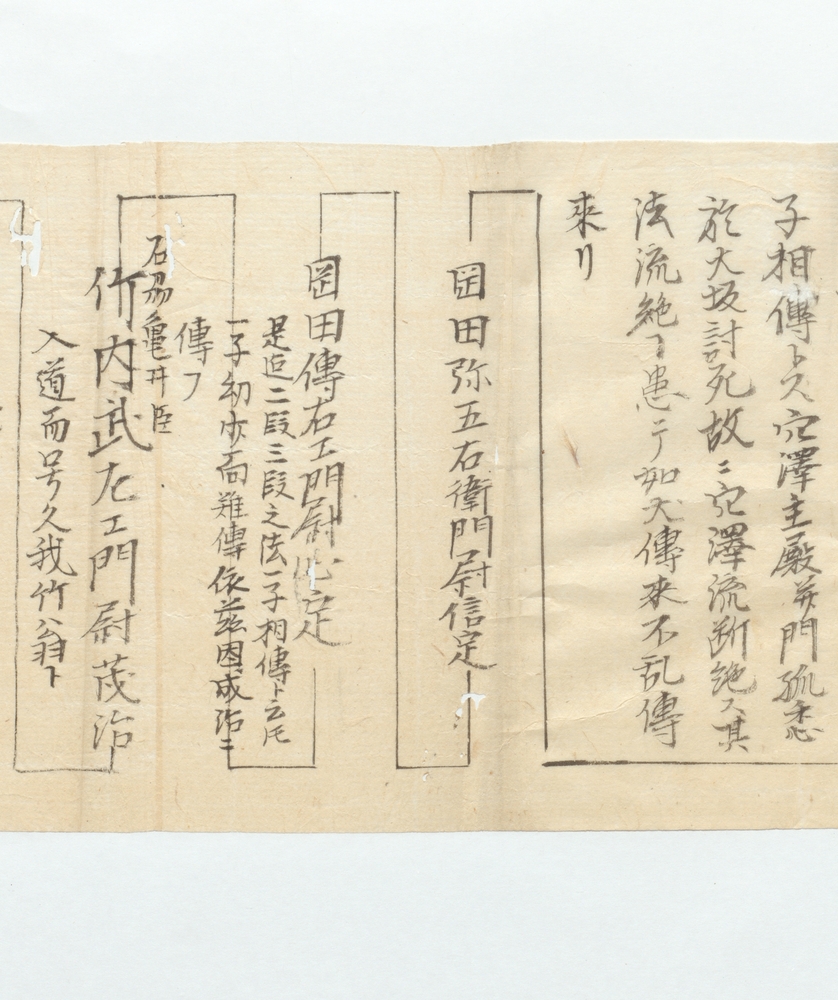 子相傳トス穴澤主殿并門弧悉
於大坂討死故ニ穴澤流断絶ス其
法流絶丁患テ如犬傳来不乱傳
来リ
岡田弥五右衛門尉信定
岡田傳右エ門尉 定
是迄二段三段之法一子相傳ト云圧
一子幼少而難傳依茲因成治ニ
傳フ
石刕亀井臣
竹内武左エ門尉茂治
入道而号久我竹翁ト